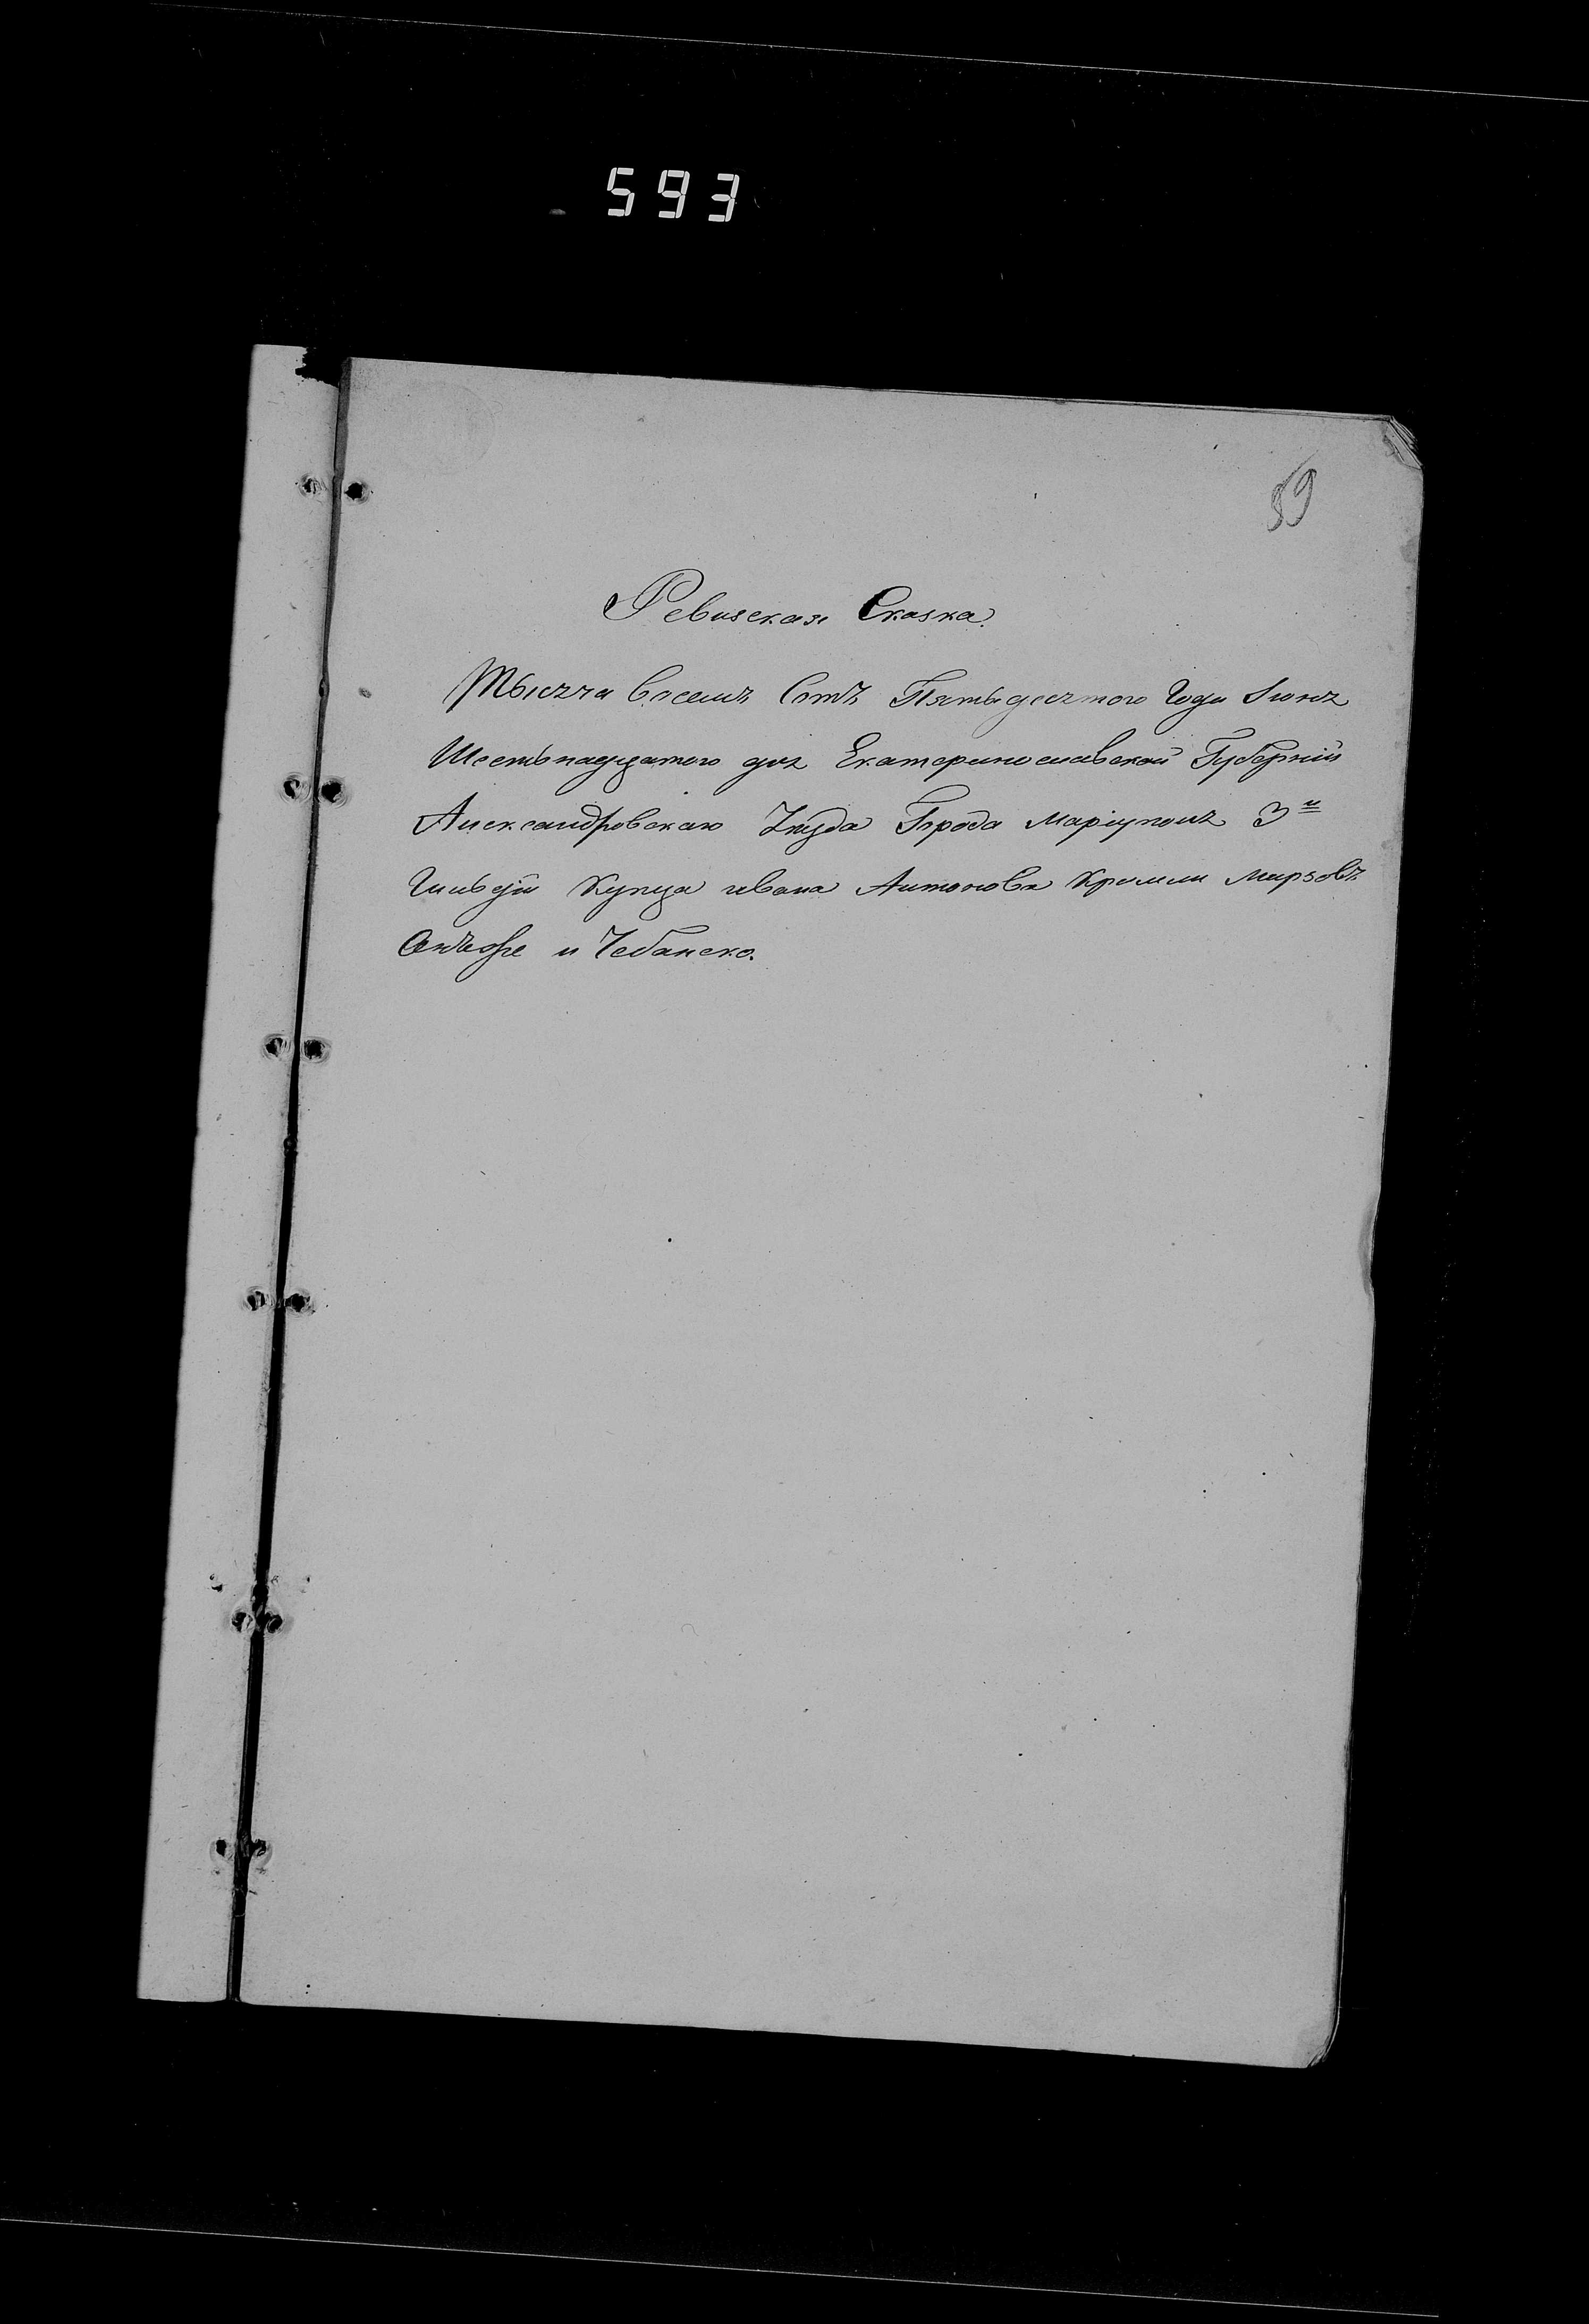 593
59
Ревизская Сказка.
Тысяча восемь Сотъ Пятьдесятого Года Іюня
Шестьнадцатого дня Екатеринославской Губерніи
Александровскаго Уезда Города Маріуполя 3й
Гильдіи Купца ивана Антонова
и Чебаненко.